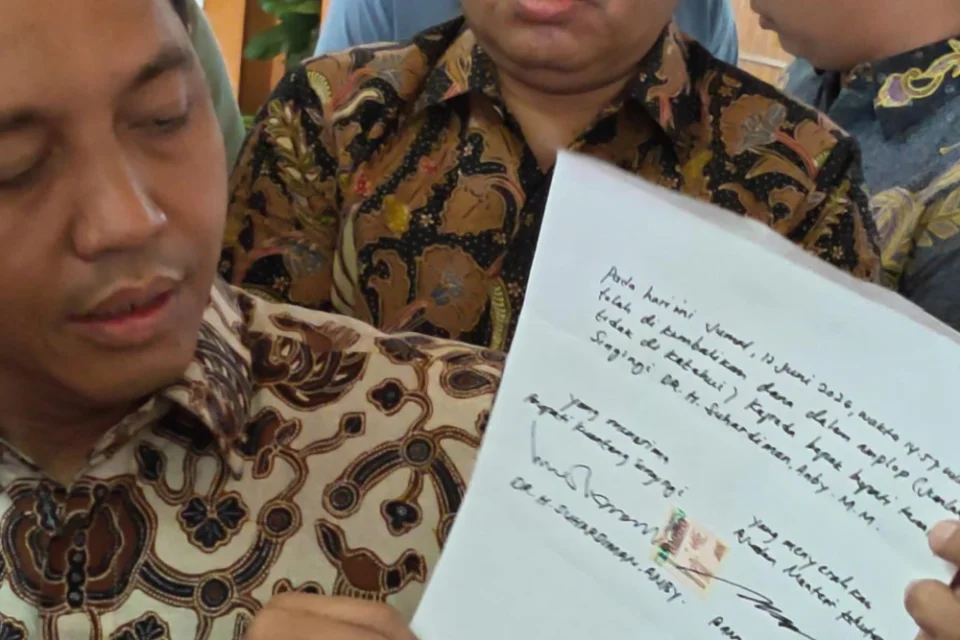 Pada hari ini Jumat, 12 Juni 2026, waktu 14.57
telah di kembalikan dana dalam amplop
tidak di ketahui) kepada bapak bupati
Singingi DR. H. Suhardiman. Amby. M.M.
yang menerima
Bupati Kuantan Singingi
DR. H. SUHARDIMAN. AMBY.
yang menyerahkan
Menteri